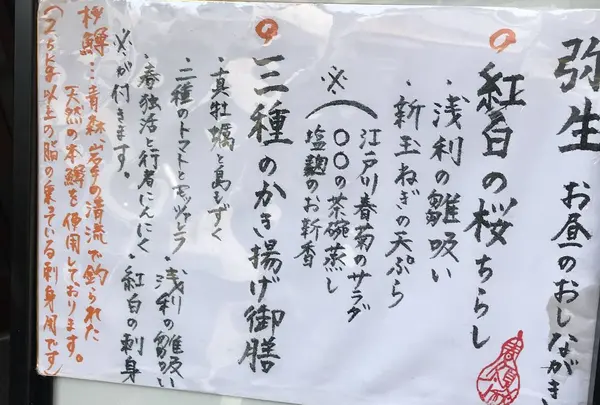 弥生 お昼のおしながき
紅白の桜ちらし
・浅利の雛吸い
・新玉ねぎの天ぷら
※
江戸川春菊のサラダ
〇〇の茶碗蒸し
塩麹のお新香
三種のかき揚げ御膳
・真牡蠣と島もずく
・二種のトマトとモッツァレラ
・春独活と行者にんにく
・浅利の雛吸い
・紅白の刺身
※が付きます。
桜鱒…青森、岩手の清流で釣られた
天然の本鱒を使用しております。
(2.5kg以上の脂の乗っている刺身用です)